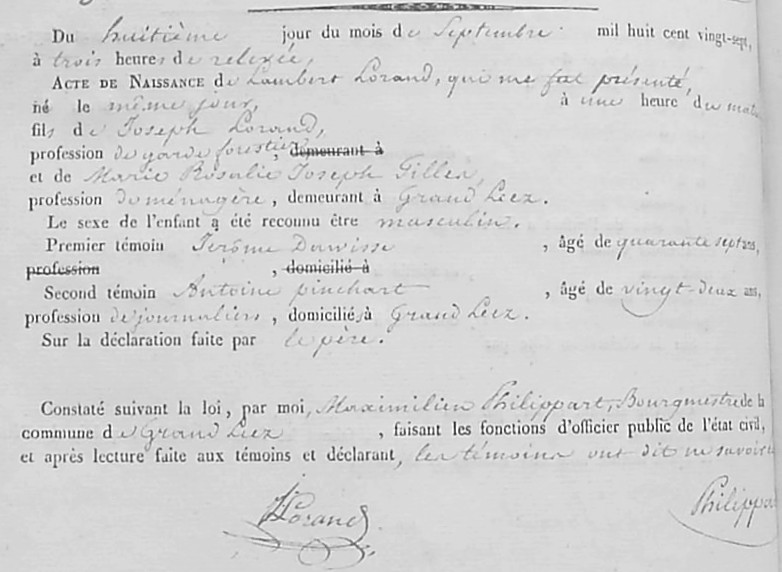 Du huitième jour du mois de Septembre mil huit cent vingt-sept,
à trois heures de relevée,
ACTE DE NAISSANCE de Lambert Lorand, qui me fut présenté,
né le même jour, à une heure du matin
fils de Joseph Lorand,
profession de garde forestier, demeurant à
et de Marie Rosalie Joseph Gilles,
profession de ménagère, demeurant à Grand Leez.
Le sexe de l'enfant a été reconnu être masculin.
Premier témoin Jérôme Dawisse, âgé de quarante sept ans,
profession , domicilié à
Second témoin Antoine pinchart, âgé de vingt-deux ans,
profession de journaliers, domiciliés à Grand Leez.
Sur la déclaration faite par le père.
Constaté suivant la loi, par moi, Maximilien Philippart, Bourgmestre de la
commune de Grand Leez, faisant les fonctions d'officier public de l'état civil,
et après lecture faite aux témoins et déclarant, les témoins ont dit ne savoir
Lorand Philippa